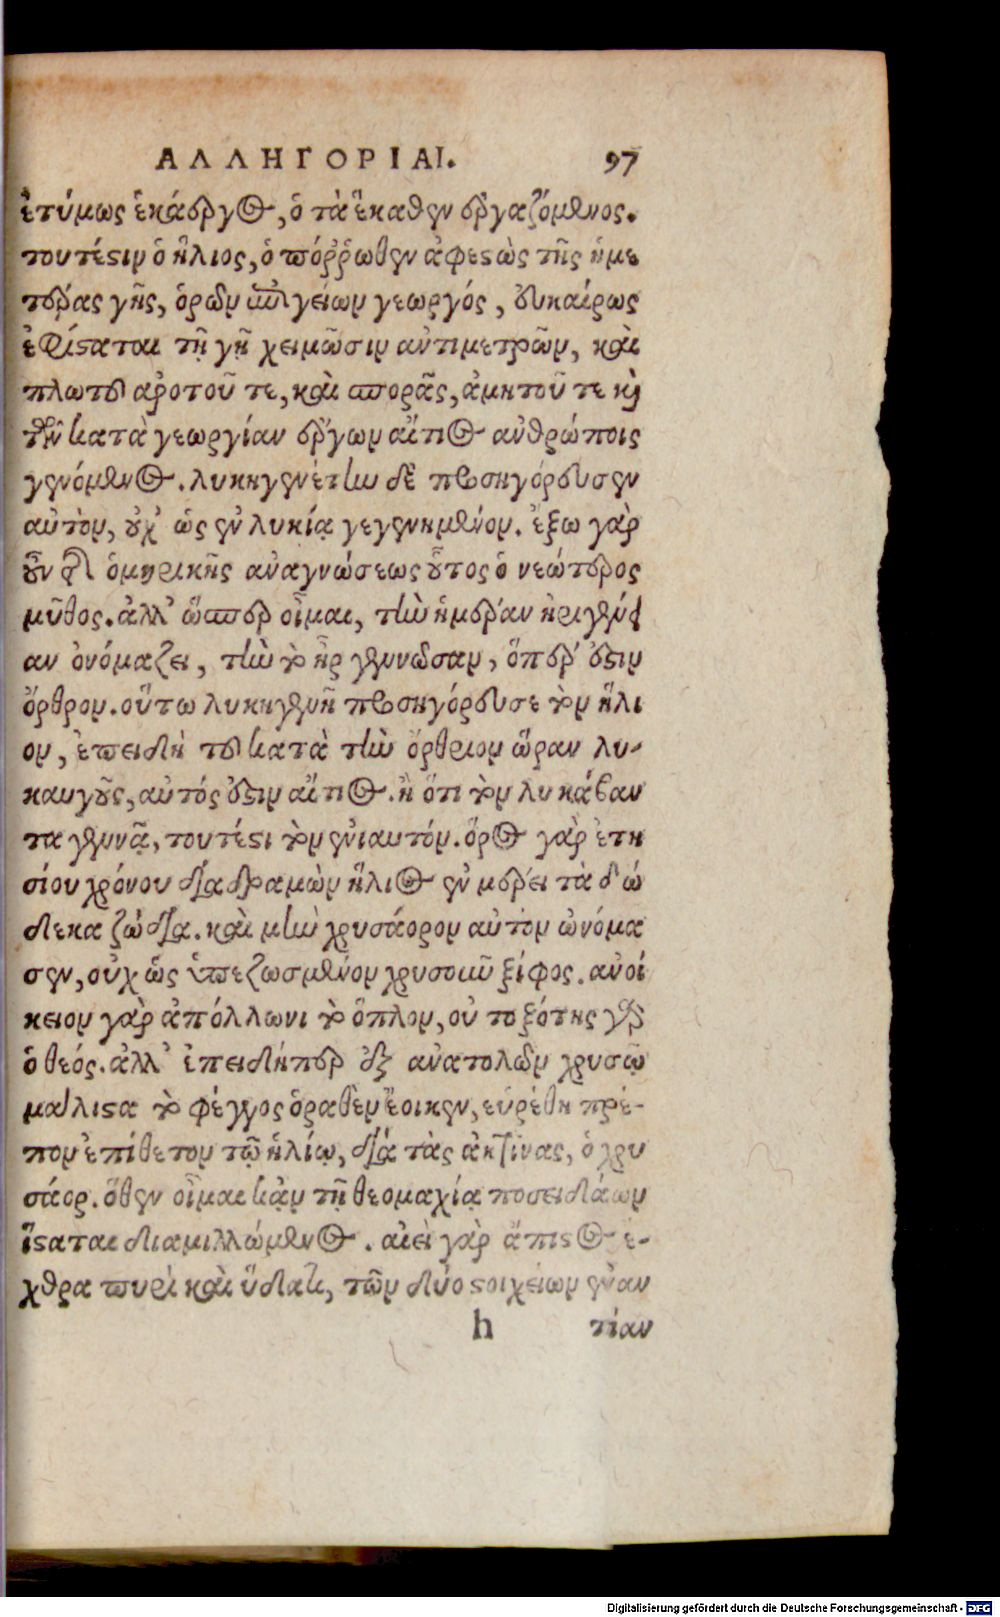 ΑΛΛΗΓΟΡΙΑΙ. 97
ἐτύμως ἑκάεργος, ὁ τὰ ἕκαθεν ἐργαζόμενος.
τουτέστιν ὁ ἥλιος, ὁ πόῤῥωθεν ἀφεστὼς τῆς ἡμε
τέρας γῆς, ὁρῶν ἐπιγείων γεωργός, εὐκαίρως
ἐφίσταται τῇ γῇ χειμῶσιν ἀντιμετρῶν, καὶ
πλωτοῦ ἀρότου τε, καὶ σπορᾶς, ἀμητοῦ τε καὶ
τῶν κατὰ γεωργίαν ἔργων αἴτιος ἀνθρώποις
γενόμενος. λυκηγενέτην δὲ προσηγόρευσεν
αὐτὸν, οὐχ ὡς ἐν λυκίᾳ γεγενημένον. ἔξω γὰρ
οὖν τῆς ὁμηρικῆς ἀναγνώσεως οὗτος ὁ νεώτερος
μῦθος. ἀλλ' ὥσπερ οἶμαι, τὴν ἡμέραν ἠριγένει
αν ὀνόμαζει, τὴν τὸ ἦρ γεννῶσαν, ὅπερ ἐστὶν
ὄρθρον. οὕτω λυκηγενῆ προσηγόρευσε τὸν ἥλι
ον, ἐπειδὴ τοῦ κατὰ τὴν ὄρθριον ὥραν λυ-
καυγοῦς, αὐτός ἐστιν αἴτιος. ἢ ὅτι τὸν λυκάβαν
τα γεννᾷ, τουτέστι τὸν ἐνιαυτόν. ὅρος γὰρ ἐτη
σίου χρόνου διαδραμὼν ἥλιος ἐν μέρει τὰ δώ
δεκα ζώδια. καὶ μὴν χρυσάορον αὐτὸν ὠνόμα
σεν, οὐχ ὡς ὑπεζωσμένον χρυσοῦν ξίφος. ἀνοί
κειον γὰρ ἀπόλλωνι τὸ ὅπλον, οὐ τοξότης γὰρ
ὁ θεός. ἀλλ' ἐπειδήπερ ἐξ ἀνατολῶν χρυσῷ
μάλιστα τὸ φέγγος ὁραθὲν ἔοικεν, εὑρέθη πρέ-
πον ἐπίθετον τῷ ἡλίῳ, διὰ τὰς ἀκτῖνας, ὁ χρυ
σάορ. ὅθεν οἶμαι κἀν τῇ θεομαχίᾳ ποσειδάων
ἵσταται διαμιλλώμενος. αἰεὶ γὰρ ἄπιστος ἔ-
χθρα πυρὶ καὶ ὕδατι, τῶν δύο στοιχείων ἐναν
h τίαν
Digitalisierung gefördert durch die Deutsche Forschungsgemeinschaft - DFG